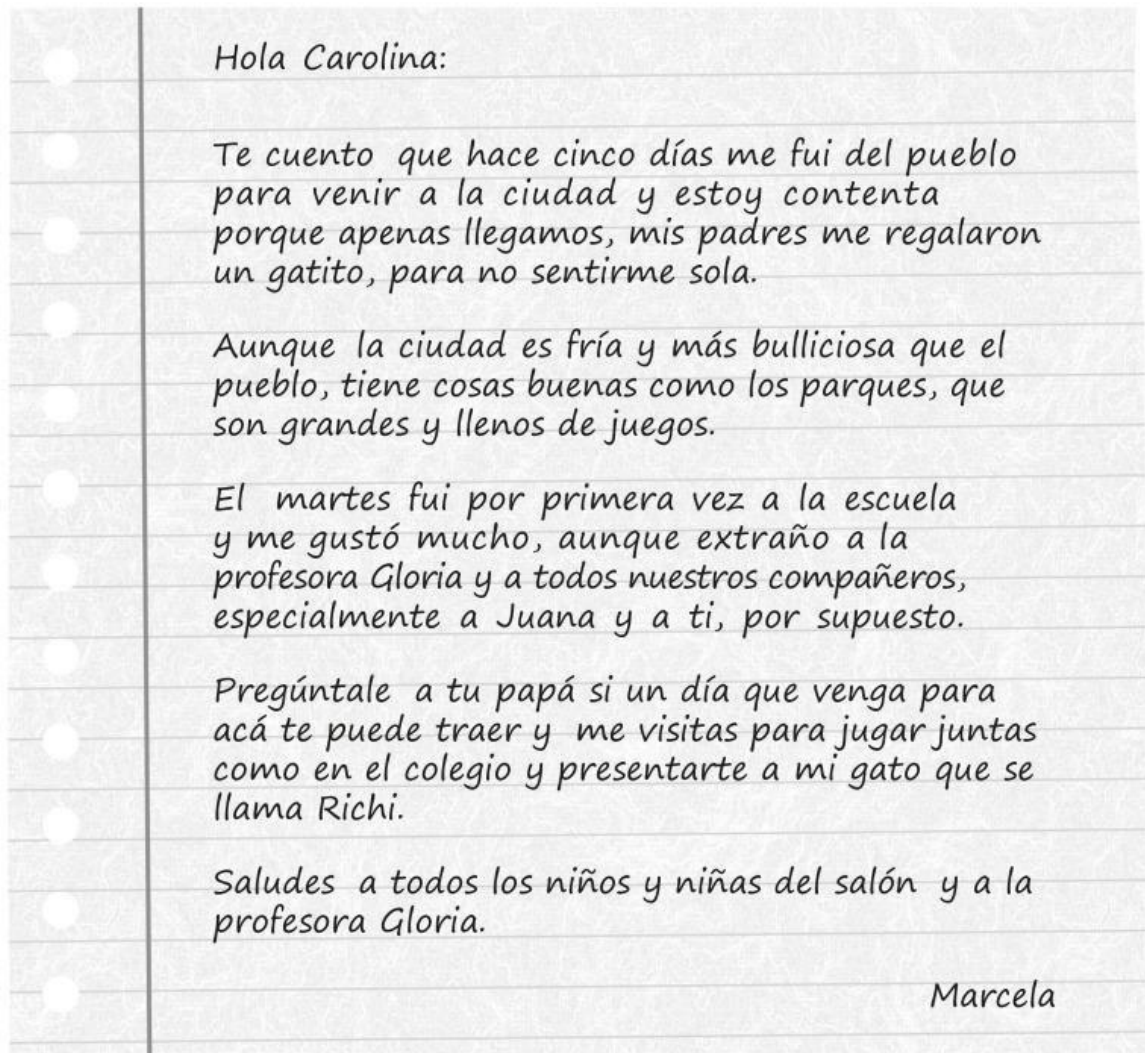 Hola Carolina:
Te cuento que hace cinco días me fui del pueblo
para venir a la ciudad y estoy contenta
porque apenas llegamos, mis padres me regalaron
un gatito, para no sentirme sola.
Aunque la ciudad es fría y más bulliciosa que el
pueblo, tiene cosas buenas como los parques, que
son grandes y llenos de juegos.
El martes fui por primera vez a la escuela
y me gustó mucho, aunque extraño a la
profesora Gloria y a todos nuestros compañeros,
especialmente a Juana y a ti, por supuesto.
Pregúntale a tu papá si un día que venga para
acá te puede traer y me visitas para jugar juntas
como en el colegio y presentarte a mi gato que se
llama Richi.
Saludes a todos los niños y niñas del salón y a la
profesora Gloria.
Marcela